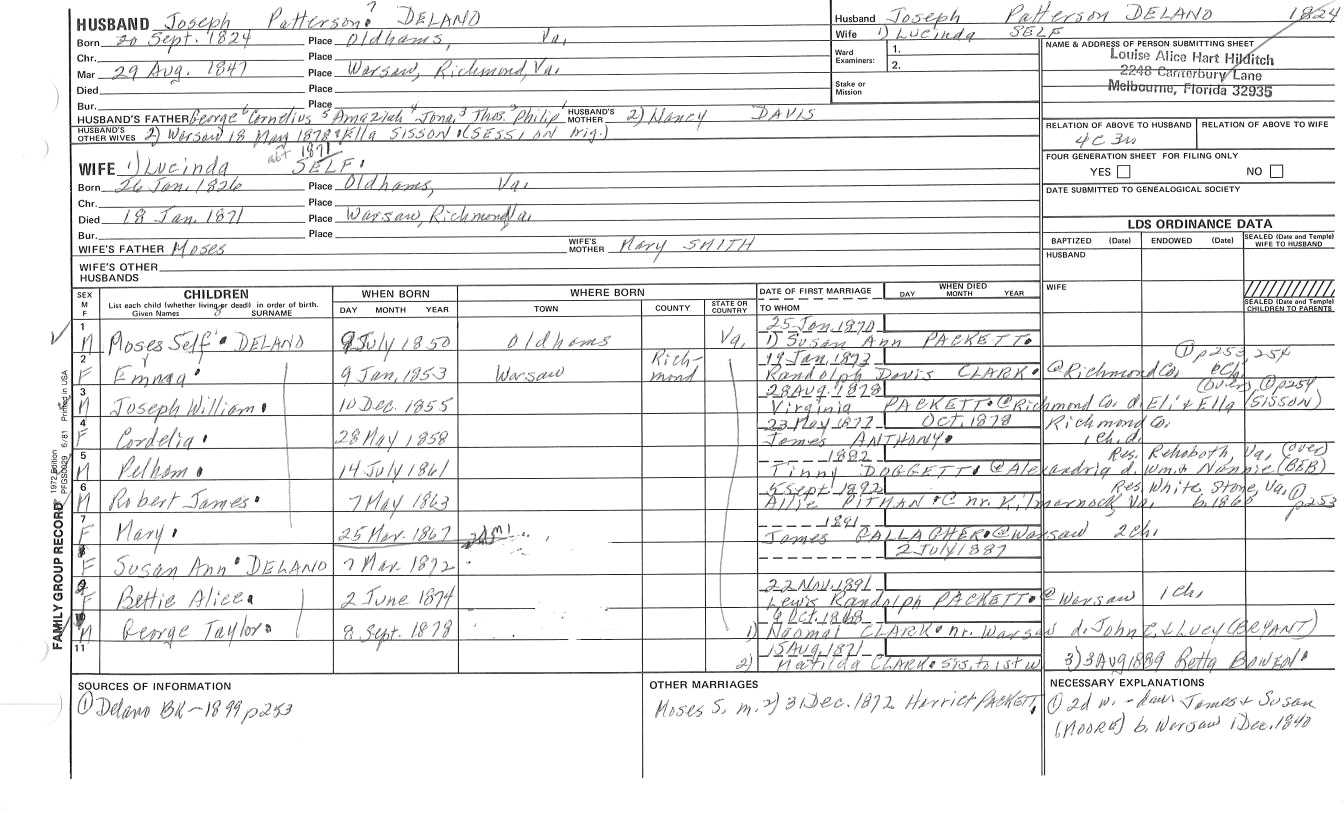 HUSBAND Joseph Patterson 7 DELANO
Born 20 Sept. 1824 Place Oldhams, Va.
Chr. Place
Mar 29 Aug. 1847 Place Warsaw, Richmond, Va.
Died Place
Bur. Place
HUSBAND'S FATHER George 6 Cornelius 5 Amaziah 4 Jona. 3 Thos. 2 Philip 1 HUSBAND'S MOTHER 2) Nancy DAVIS
HUSBAND'S OTHER WIVES 2) Warsaw 18 May 1878 Ella SISSON (SESSION orig.)
aft 1871
WIFE 1) Lucinda SELF
Born 26 Jan. 1826 Place Oldhams, Va.
Chr. Place
Died 18 Jan. 1871 Place Warsaw, Richmond Va.
Bur. Place
WIFE'S FATHER Moses WIFE'S MOTHER Mary SMITH
WIFE'S OTHER HUSBANDS
Husband Joseph Patterson DELANO 1824
Wife 1) Lucinda SELF
Ward Examiners: 1.
2.
Stake or Mission
NAME & ADDRESS OF PERSON SUBMITTING SHEET
Louise Alice Hart Hilditch
2248 Canterbury Lane
Melbourne, Florida 32935
RELATION OF ABOVE TO HUSBAND RELATION OF ABOVE TO WIFE
4C 3
FOUR GENERATION SHEET FOR FILING ONLY
YES NO
DATE SUBMITTED TO GENEALOGICAL SOCIETY
LDS ORDINANCE DATA
BAPTIZED (Date) ENDOWED (Date) SEALED (Date and Temple) WIFE TO HUSBAND
HUSBAND
WIFE
SEALED (Date and Temple) CHILDREN TO PARENTS
SEX M F CHILDREN WHEN BORN WHERE BORN DATE OF FIRST MARRIAGE WHEN DIED
List each child (whether living or dead) in order of birth. DAY MONTH YEAR TOWN COUNTY STATE OR COUNTRY TO WHOM DAY MONTH YEAR
Given Names 8 SURNAME
1 25 Jan. 1870
M Moses Self DELANO 9 July 1850 Oldhams Va. 1) Susan Ann PACKETT
2 19 Jan. 1873 ① p253, 254
F Emma 9 Jan. 1853 Warsaw Richmond Randolph Davis CLARK @ Richmond Co. 8 Ch.
3 28 Aug. 1878 (over) ① p254
M Joseph William 10 Dec. 1855 Virginia PACKETT @ Richmond Co. d. Eli & Ella (SISSON)
4 23 May 1877 Oct. 1878 Richmond Co.
F Cordelia 28 May 1858 James ANTHONY 1 Ch. d.
5 1882 Res. Rehoboth, Va. (over)
M Pelham 14 July 1861 Tinny DOGGETT @ Alexandria d. Wm. & Nannie (BEB)
6 5 Sept. 1892 Res. White Stone, Va. ①
M Robert James 7 May 1863 Allie PITMAN @ nr. Kilmarnock, Va. b. 1860 p253
7 1891
F Mary 25 Mar. 1867 James GALLAGHER @ Warsaw 2 ch.
8 2 July 1887
F Susan Ann DELANO 7 Mar. 1872
9 22 Nov. 1891
F Bettie Alice 2 June 1874 Lewis Randolph PACKETT @ Warsaw 1 Ch.
10 9 Oct. 1868
M George Taylor 8 Sept. 1878 1) Naomai CLARK nr. Warsaw d. John C. & Lucy (BRYANT)
11 15 Aug. 1871
2) Matilda CLARK sis. to 1st w 3) 3 Aug 1889 Retta BOWEN
SOURCES OF INFORMATION
① Delano BK - 1899 p253
OTHER MARRIAGES
Moses S. m. 2) 3 Dec. 1872 Harriet PACKETT
NECESSARY EXPLANATIONS
① 2d w. - dau James & Susan
(MOORE) b. Warsaw 1 Dec. 1840
FAMILY GROUP RECORD 1972 Edition PFGS0029 6/81 Printed in USA